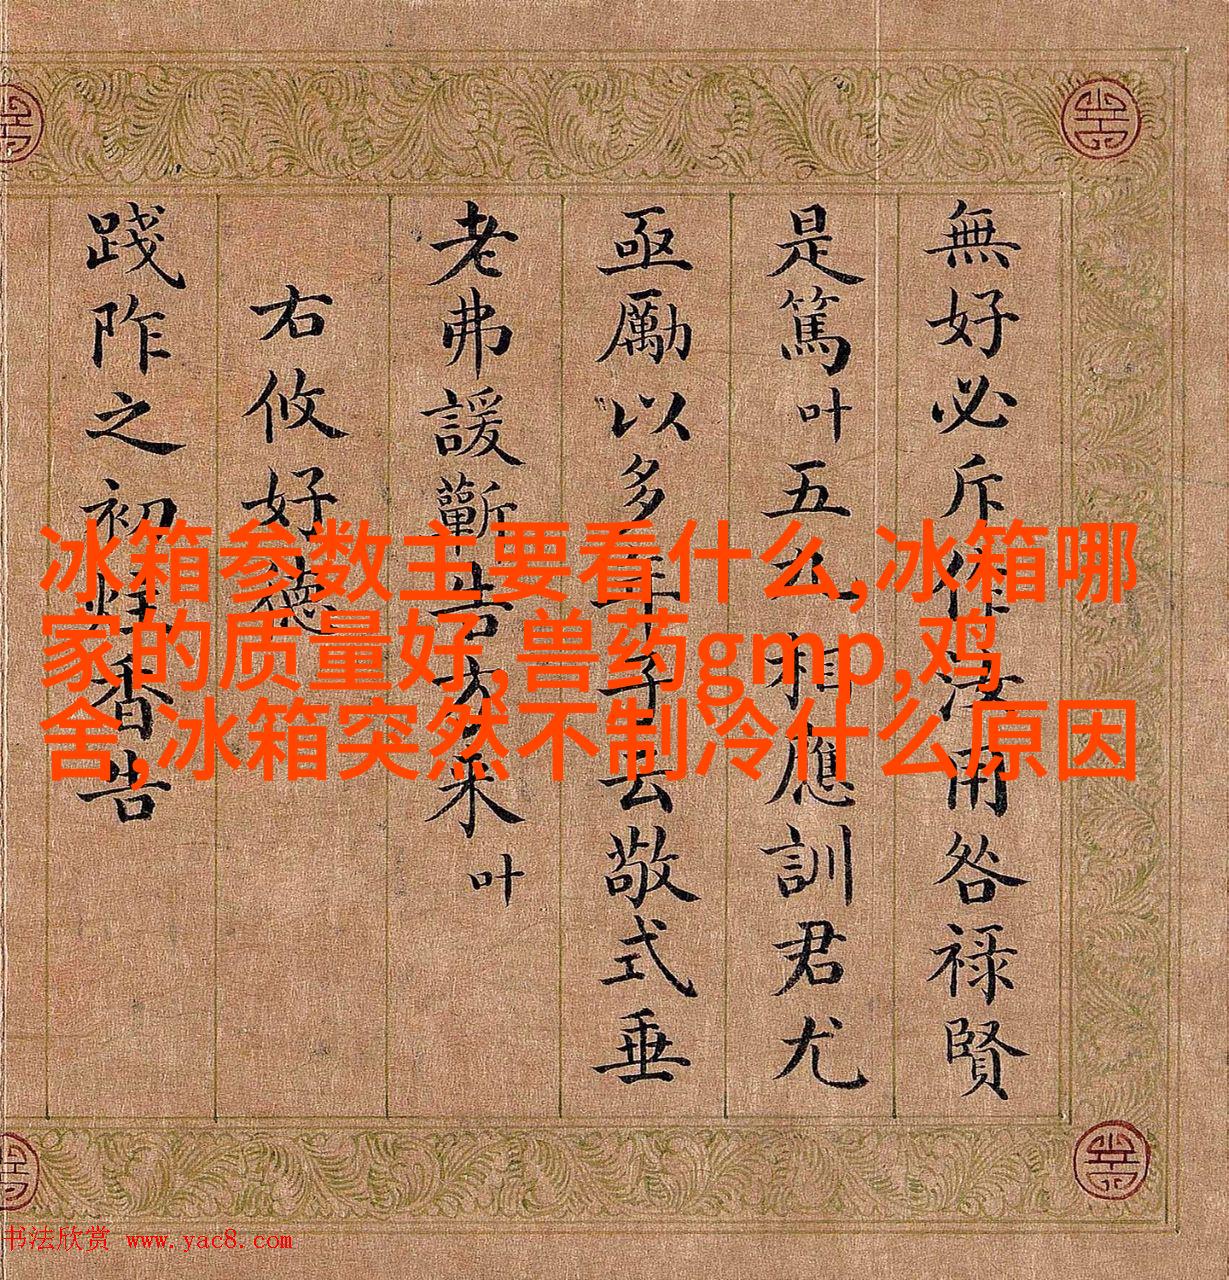 無好必斥作汝用咎祿賢
是篤叶五相應訓君尤
亟勵以多年敬式垂
老弗諼蘄告方来叶
右攸好德
踐阼之初炷香告
冰箱参数主要看什么,冰箱哪
家的质量好,兽药gmp,鸡
舍,冰箱突然不制冷什么原因
书法欣赏 www.yac8.com